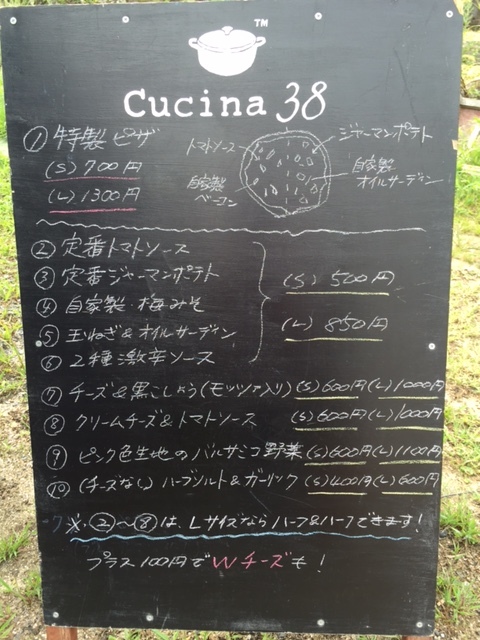 TM
Cucina 38
① 特製ピザ
(S) 700円
(L) 1300円
トマトソース
ジャーマンポテト
自家製
ベーコン
自家製
オイルサーディン
② 定番トマトソース
③ 定番ジャーマンポテト
④ 自家製 梅みそ
⑤ 玉ねぎ&オイルサーディン
⑥ 2種激辛ソース
(S) 500円
(L) 850円
⑦ チーズ&黒こしょう(モッツァ入り) (S)600円(L)1000円
⑧ クリームチーズ&トマトソース (S)600円(L)1000円
⑨ ピンク色生地のバルサミコ野菜 (S)600円(L)1100円
⑩ (チーズなし)ハーブソルト&ガーリック (S)400円(L)600円
※②〜⑧は、Lサイズならハーフ&ハーフできます!
プラス100円でWチーズも!